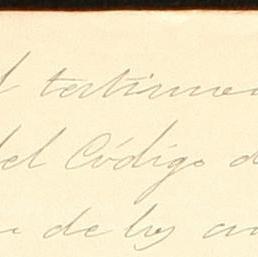 l testimon
del Código d
de los